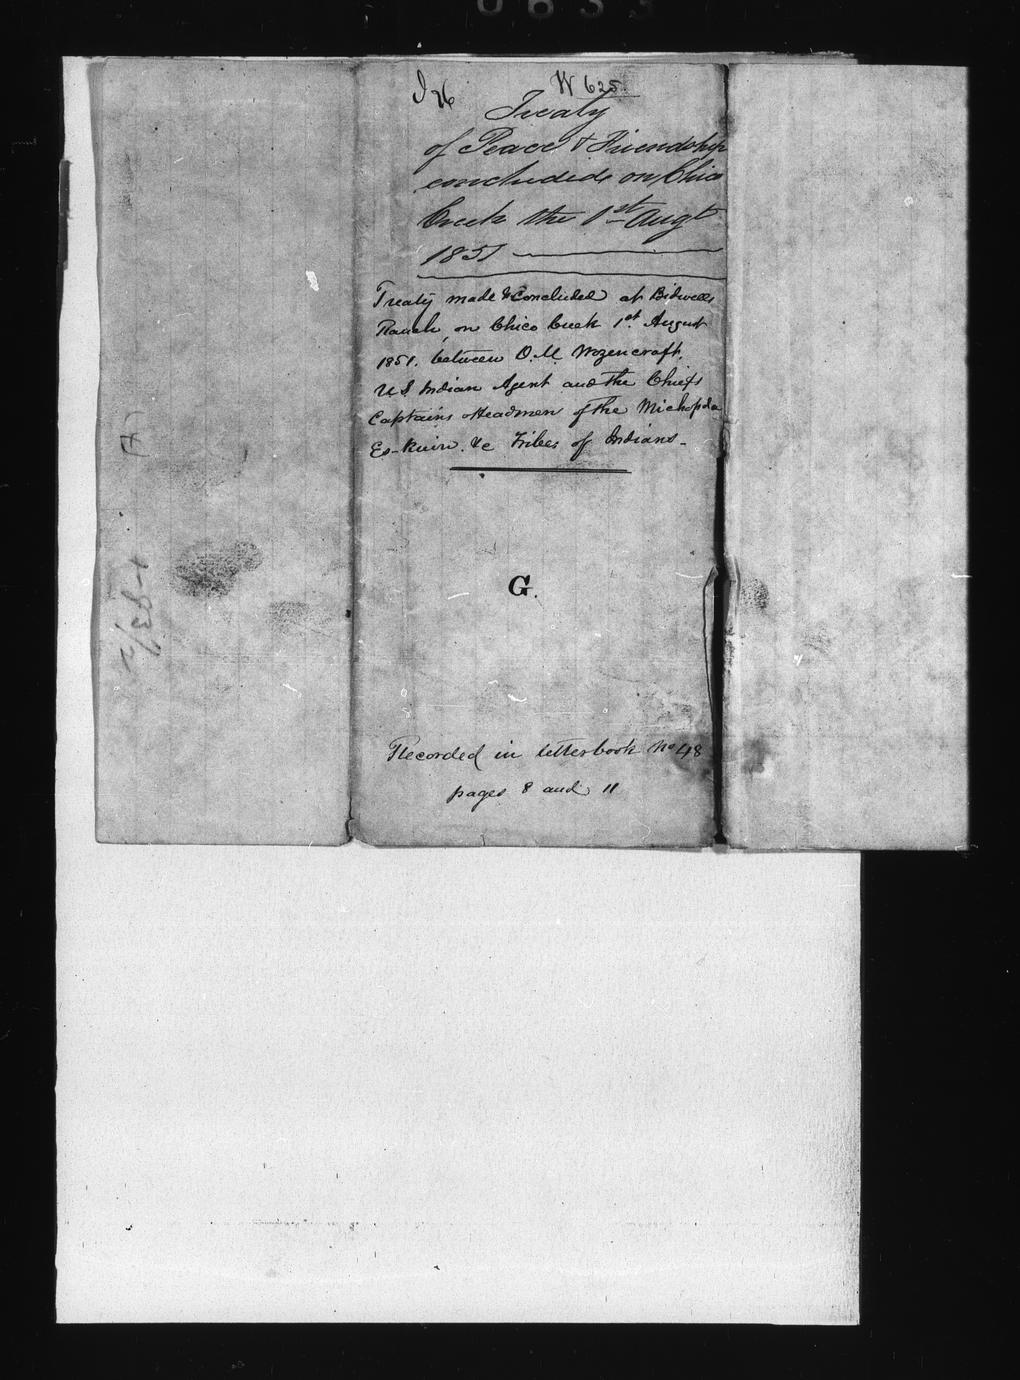 W 625.
Treaty
of Peace & Friendship
concluded on Chico
Creek the 1st Augt
1851
Treaty made & Concluded at Bidwells
Ranch, on Chico Creek 1st. August
1851. between O. M. Wozencraft.
U S Indian Agent and the Chiefs
Captains & Headmen of the Michopda
Es-kuin. &c Tribes of Indians-
G.
Recorded in letterbook No 48
pages 8 and 11